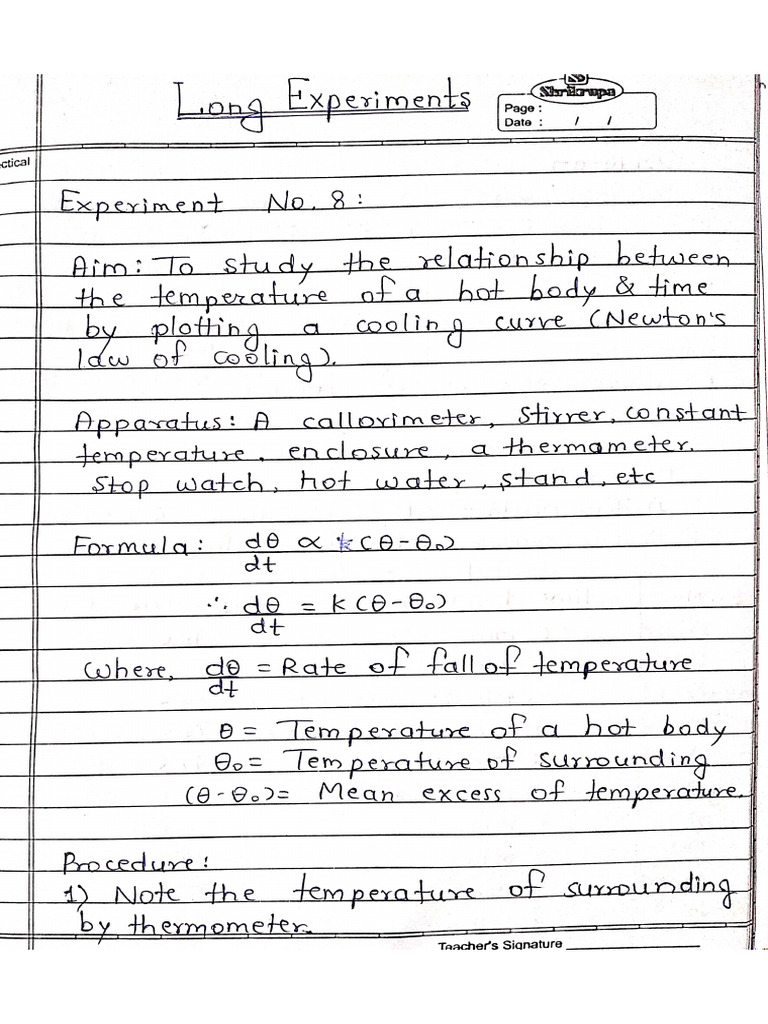 Long Experiments
Shrikrupa
Page :
Date : / /
ctical
Experiment No. 8 :
Aim : To study the relationship between
the temperature of a hot body & time
by plotting a cooling curve (Newton's
law of cooling).
Apparatus : A callorimeter, Stirrer, constant
temperature, enclosure, a thermometer.
Stop watch, hot water, stand, etc
Formula : dθ/dt ∝ (θ-θ₀)
∴ dθ/dt = k (θ-θ₀)
Where, dθ/dt = Rate of fall of temperature
θ = Temperature of a hot body
θ₀ = Temperature of surrounding
(θ-θ₀) = Mean excess of temperature.
Procedure :
1) Note the temperature of surrounding
by thermometer.
Teacher's Signature